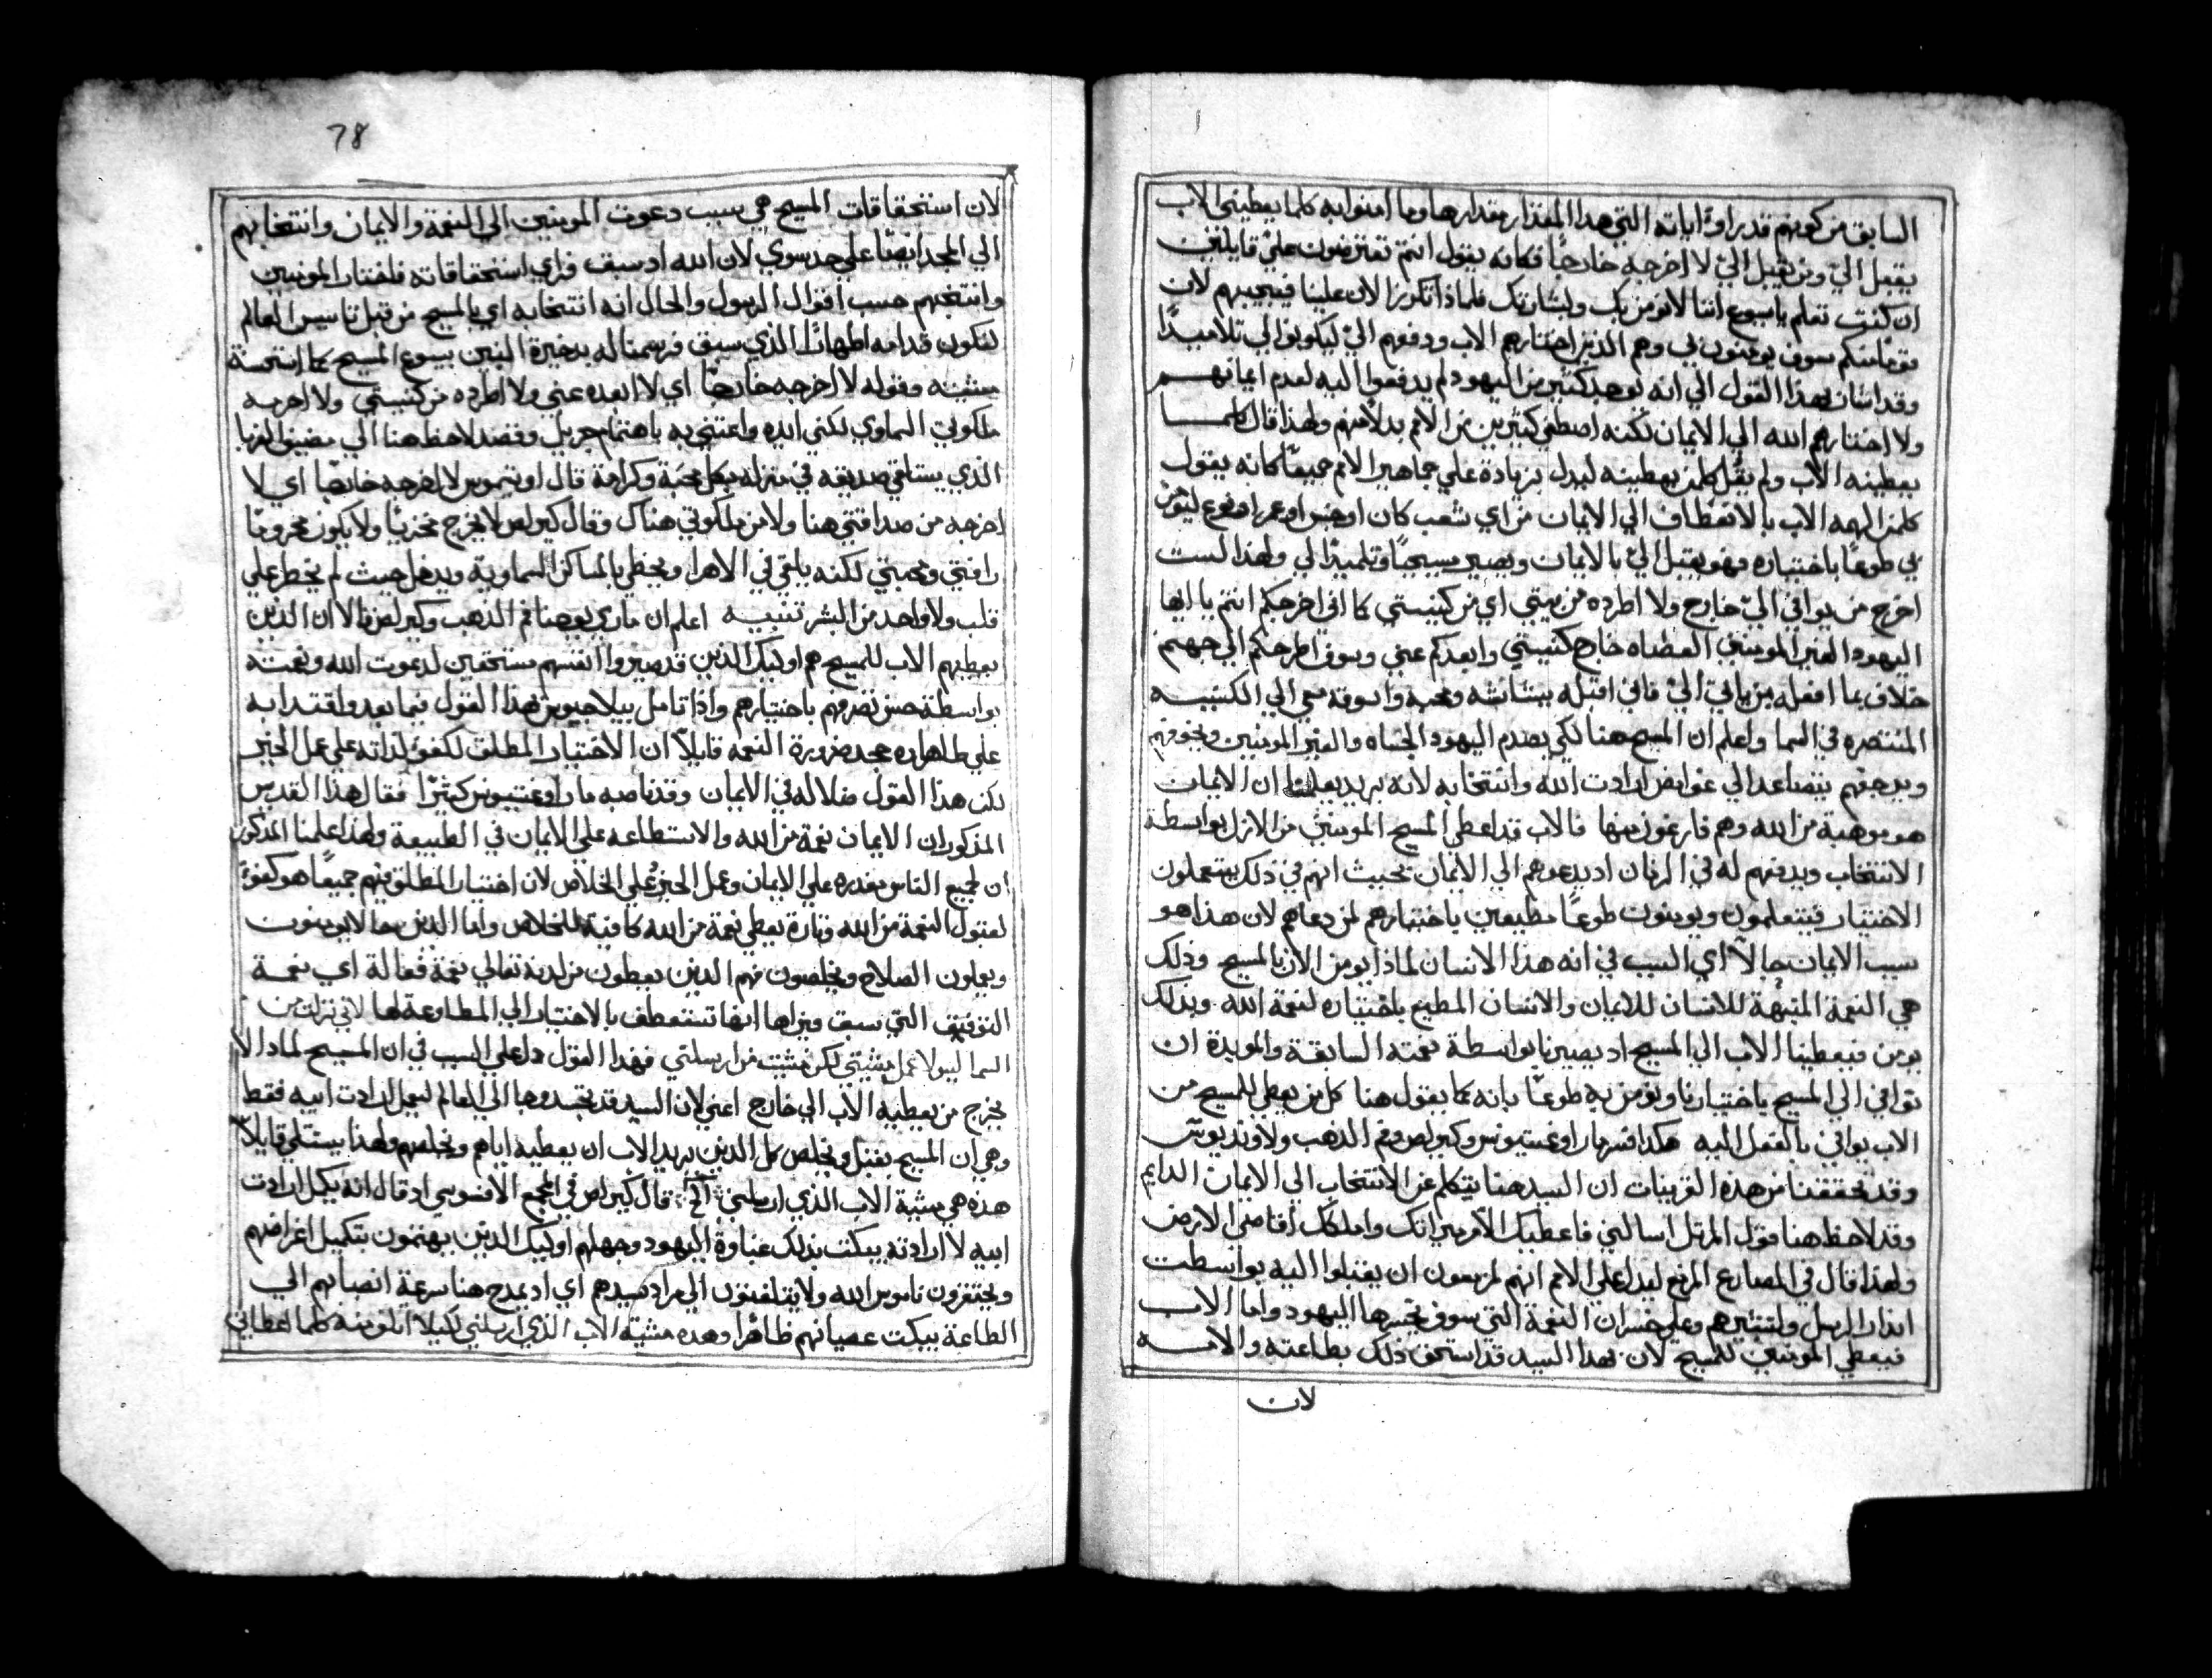 السابق من كونهم قد راوا اياته التي هذا المقدار مقدارها وما امنوا به كلما يعطيني الاب
يقبل اليّ ومن يقبل اليّ لا اخرجه خارجًا فكانه يقول انتم تعترضون عليّ قايلين
ان كنت تعلم يا يسوع اننا لا نومن بك وبشارتك فلماذا تكرز الان علينا فيجيبهم لان
قومًا منكم سوف يومنون بي وهم الذين اختارهم الاب ودفعهم اليّ ليكونوا لي تلاميدًا
وقد اشار بهذا القول الي انه يوجد كثيرين من اليهود لم يدفعوا اليه لعدم ايمانهم
ولا اختارهم الله الي الايمان لكنه اصطفي كثيرين من الامم بدلًا منهم ولهذا قال كلما
يعطينه الاب ولم يقُل كلمن يعطينه ليدل بزيادة علي جماهير الامم جميعًا كانه يقول
كلمن الهمه الاب بالانعطاف الي الايمان من اي شعب كان او جنس او عمر او نوع ليومن
بي طوعًا باختياره فهو يقبل اليّ بالايمان ويصير مسيحيًا وتلميدًا لي ولهذا لست
اخرج من يوافي اليّ خارج ولا اطرده من بيتي اي من كنيستي كما اني اخرجكم انتم يا ايها
اليهود الغير المومنين العصاه خارج كنيستي وابعدكم عني وسوف اطرحكم الي جهنم
خلاف ما افعله بمن ياتي اليّ فاني اقبله ببشاشه ومحبه واسوقه معي الي الكنيسه
المنتصره في السما واعلم ان المسيح هنا لكي يصدم اليهود الجناه والغير المومنين ويخوفهم
ويرجفهم يتصاعد الي غوامض ارادت الله وانتخابه لانه يريد يعلمنا ان الايمان
هو موهبة من الله وهم فارغون منها فالاب قد اعطي المسيح المومنين من الازل بواسطة
الانتخاب ويدفعهم له في الزمان اد يدعوهم الي الايمان بحيث انهم في ذلك يستعملون
الاختيار فيتعلمون ويومنون طوعًا مطيعين باختيارهم لمن دعاهم لان هذا هو
سبب الايمان حالًا اي السبب في انه هذا الانسان لماذا يومن الان بالمسيح وذلك
هي النعمة المنبهة للانسان للايمان والانسان المطيع باختياره لنعمة الله وبذلك
يومن فيعطينا الاب الي المسيح اد يصيرنا بواسطة نعمته السابقة والمويدة ان
نوافي الي المسيح باختيارنا ونومن به طوعًا بانه كما يقول هنا كل من يعطي للمسيح من
الاب يوافي بالفعل اليه هكدا فسر مار اوغستينوس وكيرلص وفم الدهب ولاونديوس
وقد تحققنا من هذه القرينات ان السيد هنا يتكلم عن الانتخاب الي الايمان الدايم
وقد لاحظ هنا قول المرتل اسالني فاعطيك الامم ميراتك واملكك اقاصي الارض
ولهذا قال في المضارع المزمع ليدل علي الامم انهم مزمعون ان يقبلوا اليه بواسطت
اندار الرسل وتبشيرهم وعلي خسران النعمة التي سوف يخسرها اليهود واما الاب
فيعطي المومنين للمسيح لان هدا السيد قد استحق ذلك بطاعته والامه
لان
78
لان استحقاقات المسيح هي سبب دعوت المومنين الي النعمة والايمان وانتخابهم
الي المجد ايضًا علي حد سوي لان الله اد سبق فراي استحقاقاته فاختار المومنين
وانتخبهم حسب اقوال الرسول والحال انه انتخابه اي بالمسيح من قبل تاسيس العالم
لنكون قدامه اطهارًا الذي سبق فرسمنا له بدخيرة البنين بيسوع المسيح كما استحسنة
مشيته وقوله لا اخرجه خارجًا اي لا ابعده عني ولا اطرده من كنيستي ولا اخرجه
ملكوتي السماوي لكني ايده واعتني به باهتمام جزيل وقصد لاحظ هنا الي مضيق الغربا
الذي يستلقي صديقه في منزله بكل محبة وكرامة قال اوتيموس لا اخرجه خارجًا اي لا
اخرجه من صداقتي هنا ولا من ملكوتي هناك وقال كيرلص لا يخرج مخزيًا ولا يكون محرومًا
رافتي ومحبتي لكنه يلقي في الاهرا ويحظي بالمساكن السماوية ويدخل حيث لم يخطر علي
قلب ولا واحد من البشر تنبيه اعلم ان ماري يوحنا فم الدهب وكيرلص قالا ان الذين
يعطيهم الاب للمسيح هم اوليك الذين قد صيروا انفسهم مستحقين لدعوت الله ونعمته
بواسطة حسن تصرفهم باختيارهم واذا تامل بيلاجيوس هدا القول فيما بعد واقتدا به
علي ظاهره جحد ضرورة النعمه قايلًا ان الاختيار المطلق لكفوء لداته علي عمل الخير
لكن هذا القول ضلاله في الايمان وقد ناصبه مار اوغستينوس كثيرًا فقال هذا القديس
المذكور ان الايمان نعمة من الله والاستطاعه علي الايمان في الطبيعة ولهذا علمنا المذكور
ان لجميع الناس مقدره علي الايمان وعمل الخير وعلي الخلاص لان اختيار المطلق فيهم جميعًا هو كفوء
لقبول النعمة من الله وتارة يعطي نعمة من الله كافية للخلاص واما الذين حالا يومنون
ويعملون الصلاح ويخلصون فهم الدين يعطون من لدنه تعالي نعمة فعالة اي نعمة
التوفيق التي سبق ويراها انها تستعطف بالاختيار الي المطاوعة لها لاني نزلت من
السما ليس لاعمل مشيتي لكن مشيت من ارسلني فهذا القول دل علي السبب في ان المسيح لماذا لا
يخرج من يعطيه الاب الي خارج اعني لان السيد قد تجسد وجا الي العالم ليعمل ارادت ابيه فقط
وهي ان المسيح يقبل ويخلص كل الذين يريد الاب ان يعطيه اياهم ويخلصهم ولهذا يستتلي قايلًا
هذه هي مشية الاب الذي ارسلني الخ قال كيرلص في المجمع الافسوسي اد قال انه يكمل ارادت
ابيه لا ارادته يبكت بذلك غباوة اليهود وجهلهم اوليك الذين يهتمون بتكميل اغراضهم
ويحتقرون ناموس الله ولا يتلفتون الي مراد سيدهم اي اد يمدح هنا سرعة انصبابهم الي
الطاعة يبكت عصيانهم ظاهرًا وهده مشية الاب الذي ارسلني لكيلا اتلف منه كلما اعطاني